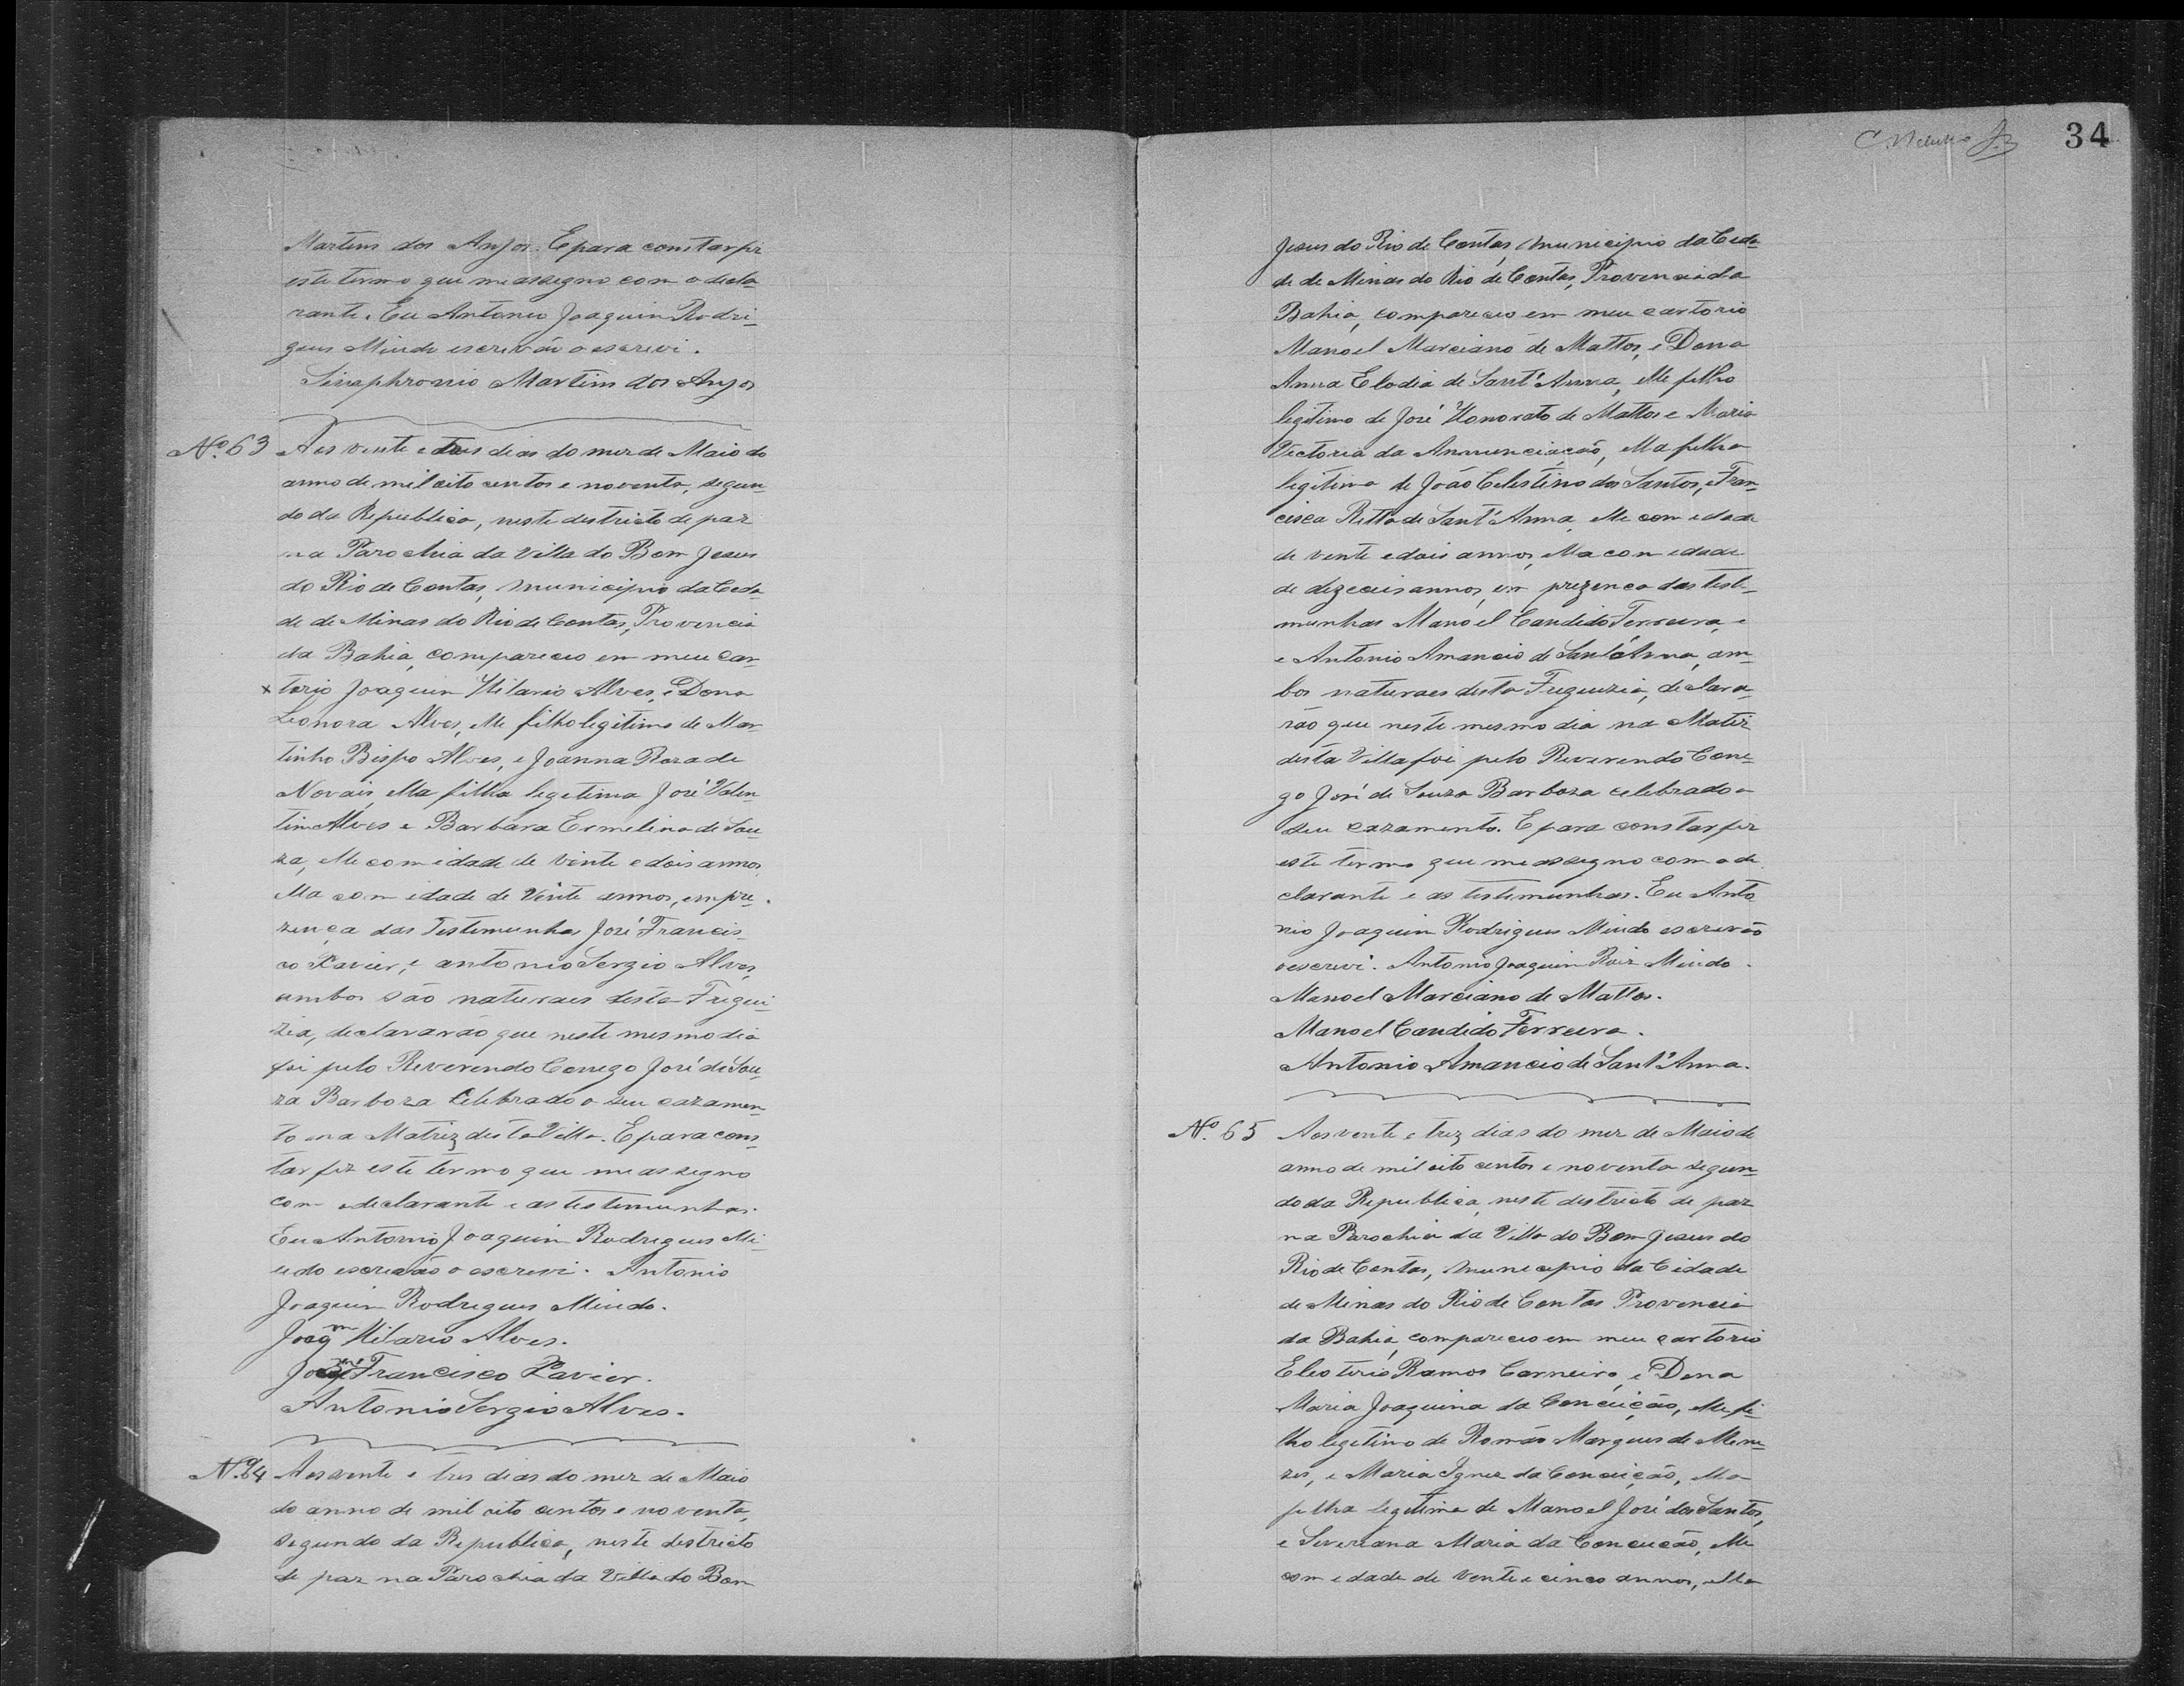 Martins dos Anjos. E para constar fiz
este termo que me assegno com o decla-
rante. Eu Antonio Joaquim Rodri-
gues Miudo escrevão o escrevi.
Sinaphronio Martins dos Anjos
Nº. 63 Aos vente e tres dias do mez de Maio do
anno de mil oito centos e noventa, segun-
do da Republica, neste destricto de paz
na Parochia da Villa do Bom Jesus
do Rio de Contas, Municipio da Ceda-
de de Minas do Rio de Contas, Provencia
da Bahia, compareceo em meu car-
x torio Joaquim Hilario Alves, e Dona
Leonora Alves, elle filho legitimo de Mar-
tinho Bispo Alves, e Joanna Roza de
Novais, ella filha legetima José Valen-
tim Alves e Barbara Ermelina de Sou-
za, elle com idade de vinte e dois annos,
ella com idade de Vinte annos, em pre-
zença das Testemunhas José Francis-
co Xavier, e antonio Sergio Alves,
ambos são naturaes desta Fregui-
zia, declararão que neste mesmo dia
foi pelo Reverendo Conego José de Sou-
za Barboza Celebrado o seu cazamen-
to na Matriz desta Villa. E para cons-
tar fiz este termo que me assegno
com o declarante e as testemunhas.
Eu Antonio Joaquim Rodrigues Mi-
udo escrevão o escrevi. Antonio
Joaquim Rodrigues Miudo.
Joaqm Hilario Alves.
José Francisco Xavier.
Antonio Sergio Alves.
Nº. 64 Aos vente e tres dias do mez de Maio
do anno de mil oito centos e noventa,
segundo da Republica, neste destricto
de paz na Parochia da Villa do Bom
34
Jesus do Rio de Contas, Municipio da Ceda-
de de Minas do Rio de Contas, Provencia da
Bahia, compareceo em meu cartorio
Manoel Marciano de Mattos, e Dona
Anna Elodia de Sant'Anna, elle filho
legitimo de José Honorato de Mattos e Maria
Victoria da Annunciação, ella filha
legitima de João Celestino dos Santos, e Fran-
cisca Ritta de Sant'Anna, elle com edade
de vente e dois annos, ella com edade
de dezeceis annos, em prezenca das teste-
munhas Manoel Candido Ferreira, e
e Antonio Amancio de Sant'Anna, am-
bos naturaes desta Freguezia, declara-
rão que neste mesmo dia na Matriz
desta Villa foi pelo Reverendo Cone-
go José de Souza Barboza celebrado o
seu cazamento. E para constar fiz
este termo que me assegno com o de
clarante e as testemunhas. Eu Anto
nio Joaquim Rodrigues Miudo escrevão
o escrevi. Antonio Joaquim Roiz Miudo.
Manoel Marciano de Mattos.
Manoel Candido Ferreira.
Antonio Amancio de Sant'Anna.
Nº. 65 Aos vente e trez dias do mez de Maio de
anno de mil oito centos e noventa segun-
do da Republica, neste destricto de paz
na Parochia da Villa do Bom Jesus do
Rio de Contas, Municipio da Cidade
de Minas do Rio de Contas Provencia
da Bahia, compareceo em meu cartorio
Eleoterio Ramos Carneiro, e Dona
Maria Joaquina da Conceição, elle fi-
lho legetimo de Romão Marques de Mene-
zes, e Maria Ignez da Conceição, ella
filha legetima de Manoel José dos Santos,
e Severiana Maria da Conceicão, elle
com edade de vente e cinco annos, ella